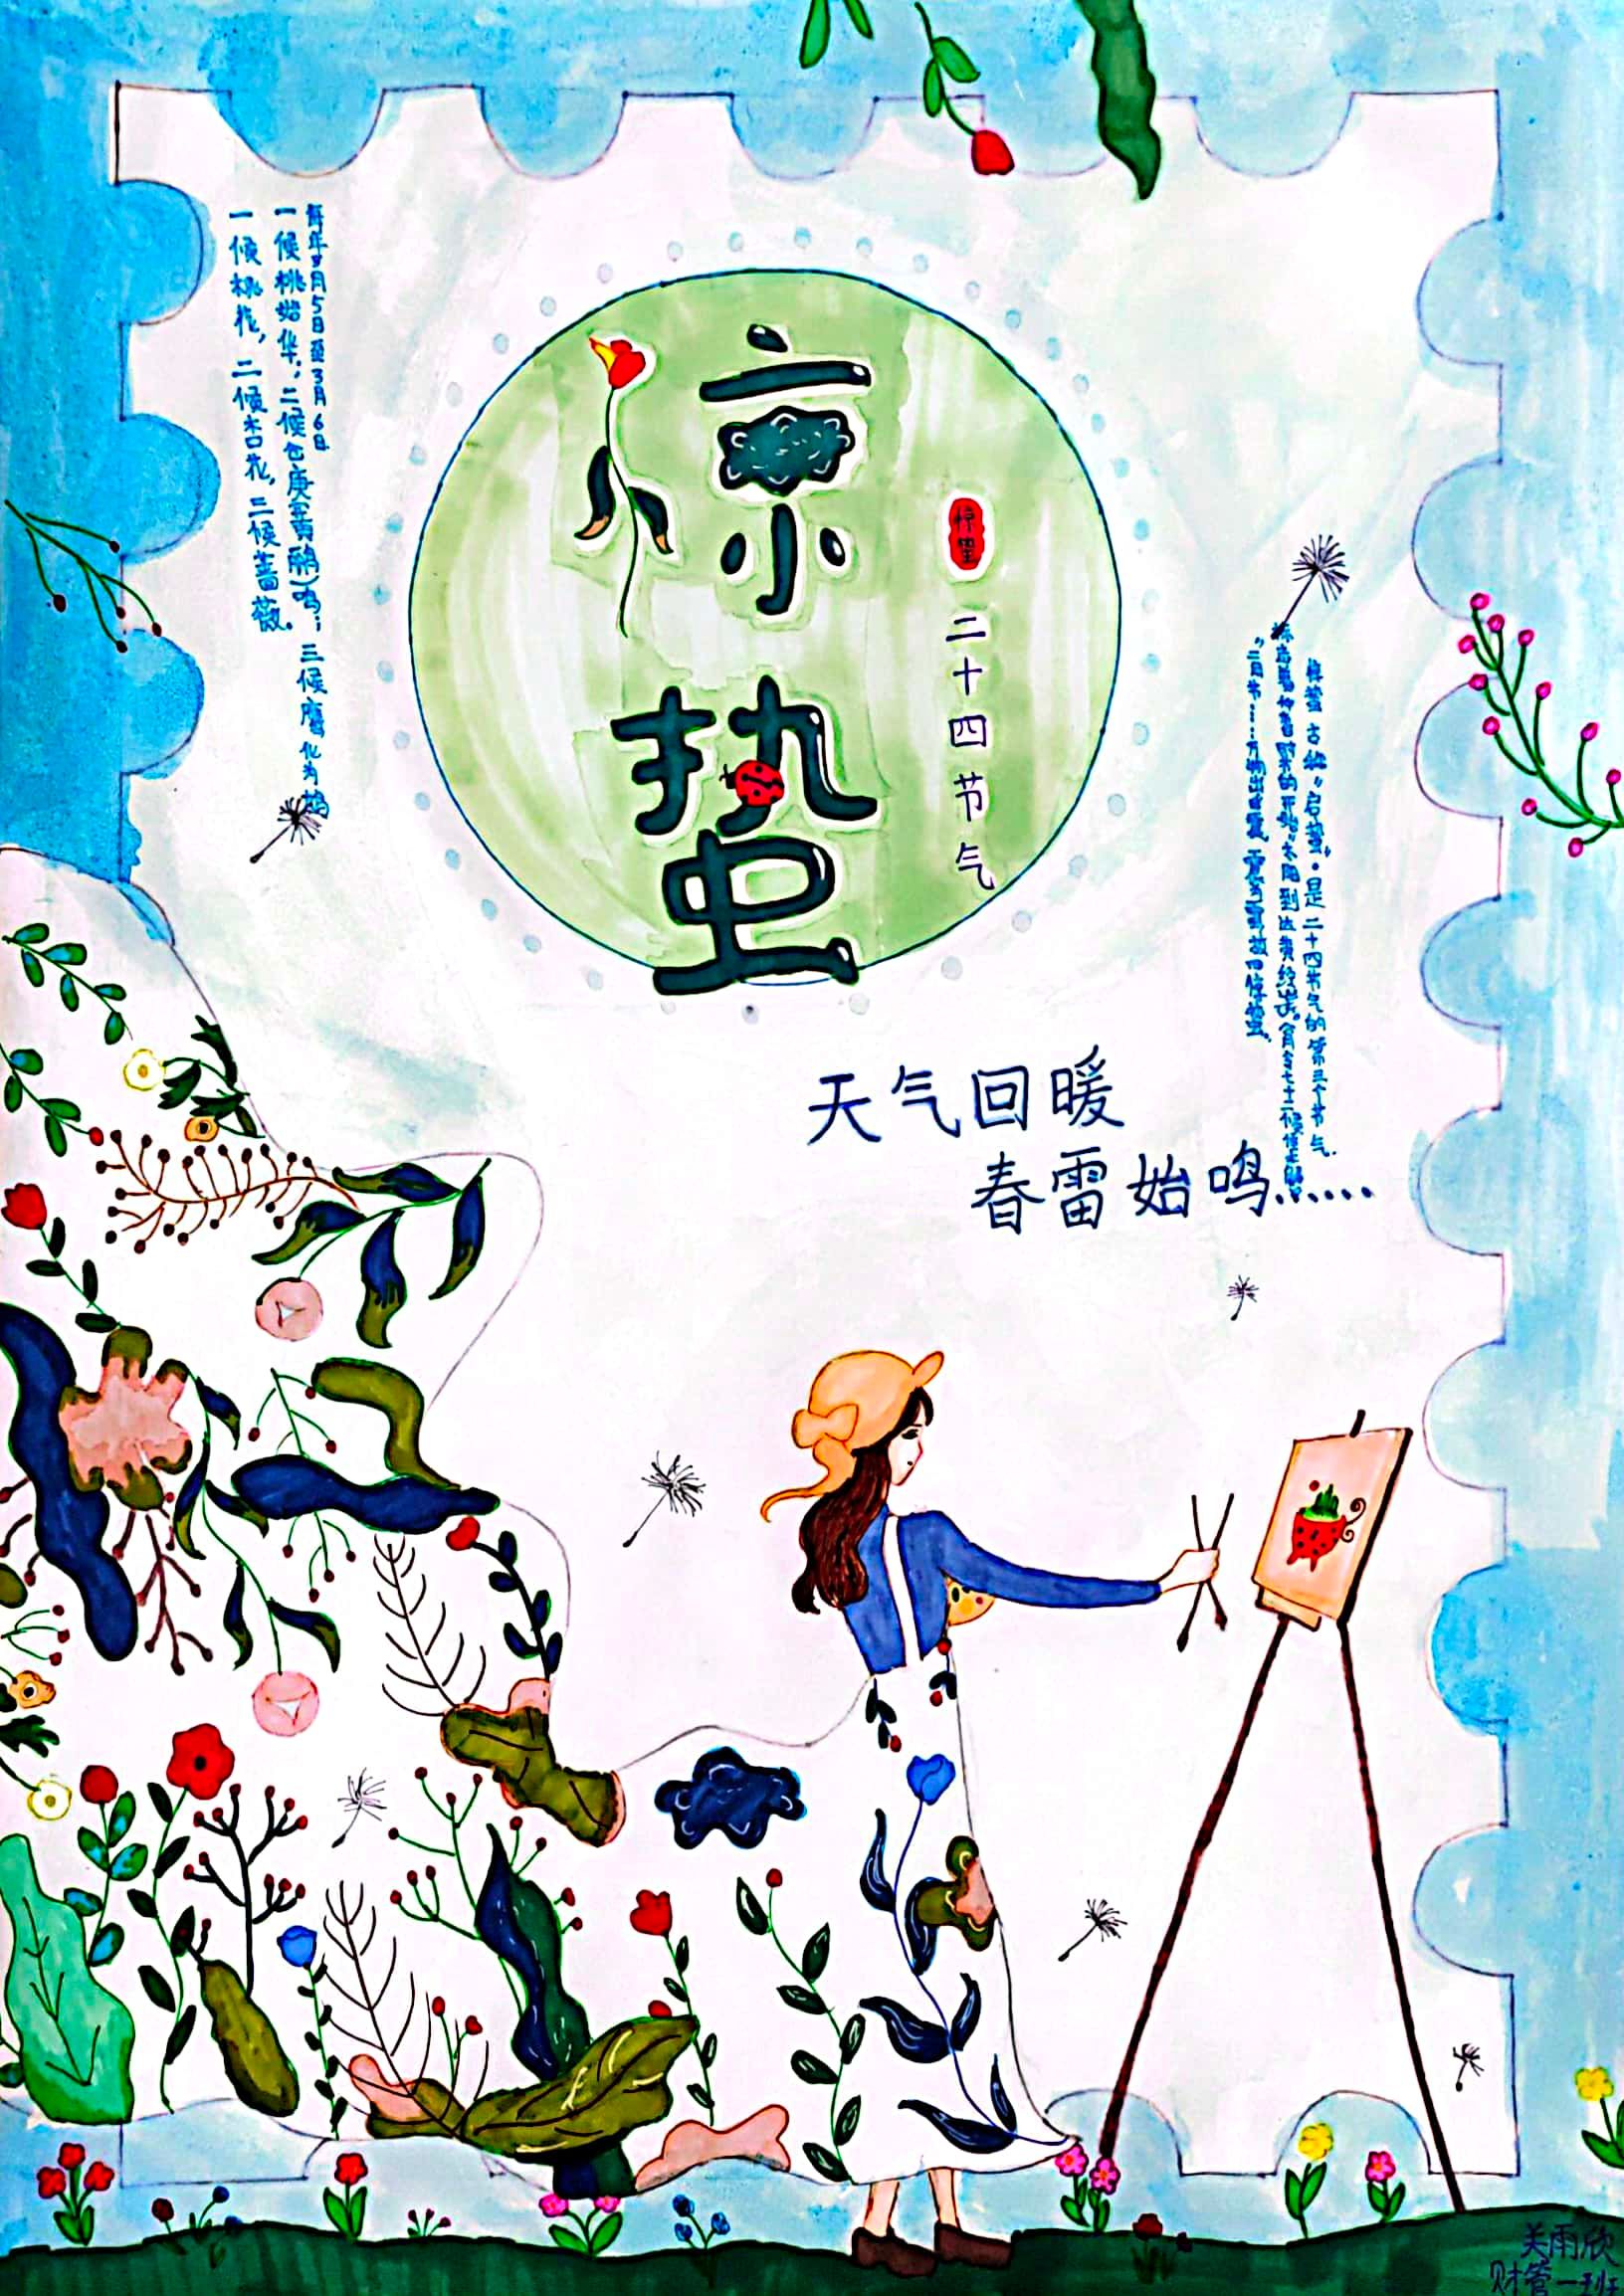 惊蛰
惊蛰
二十四节气
每年3月5日至3月6日
一候桃始华;二候仓庚(黄鹂)鸣;三候鹰化为鸠
一候桃花,二候杏花,三候蔷薇.
惊蛰 古称"启蛰",是二十四节气的第三个节气.
标志着仲春时节的开始.太阳到达黄经 月令七十二候集解
"二月节……万物出乎震,震为雷,故曰惊蛰.
天气回暖
春雷始鸣......
雨欣
财管一班